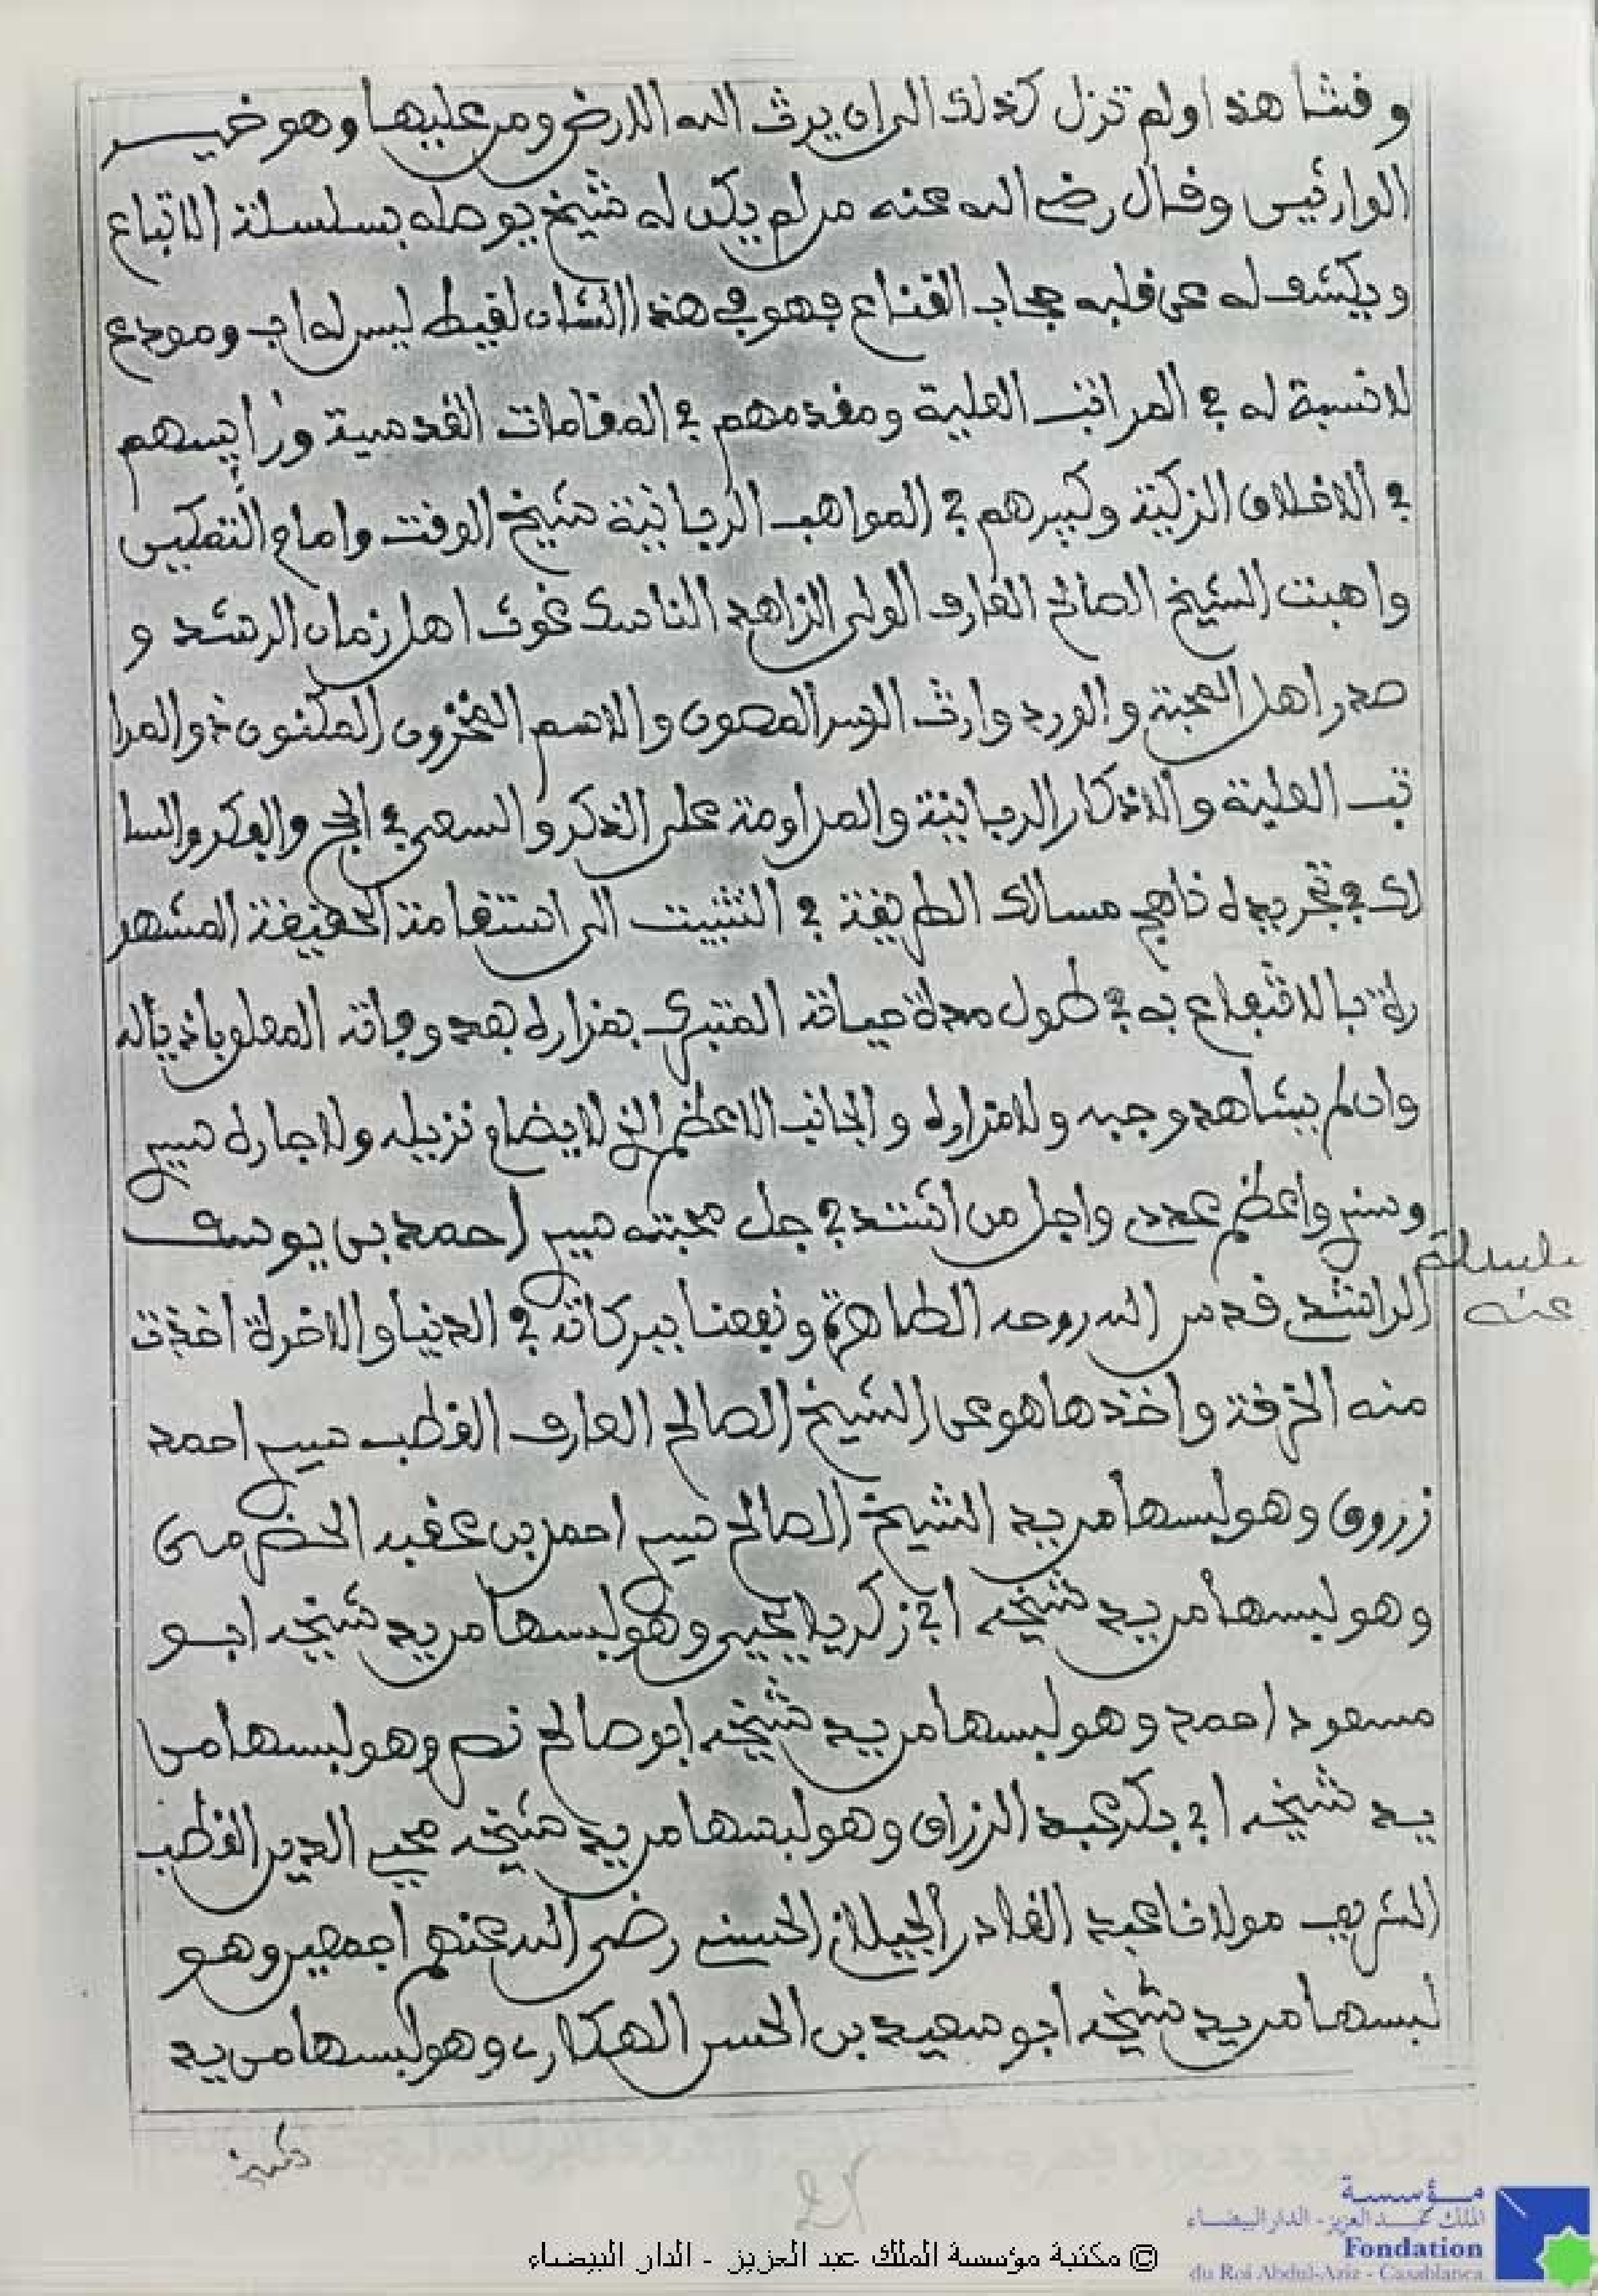 وقتنا هذا ولم تزل كذلك الى ان يرث الله الارض ومن عليها وهو خيـر
الوارثين وقال رضي الله عنه من لم يكن له شيخ يوصله بسلسلة الاتباع
ويكشف له عن قلبه حجاب القناع فهو في هذا الشان لقيط ليس له اب ومودع
لا نسبة له في المراتب العلية ومقدمهم في المقامات القدسية ورايسهم
في الاخلاق الزكية وكبيرهم في المواهب الربانية شيخ الوقت وامام التمكين
واهبت الشيخ الصالح العارف الولي الزاهد الناسك غوث اهل زمان الرشد و
صدر اهل المحبة والورد وارث السر المصون والاسم المخزون المكنون ذو المرا
تب العلية والاذكار الربانية والمداومة على الذكر والسعي في الحج والفكر والسا
لك في تجريده ناهج مسالك الطريقة في التثبيت الى استقامة الحقيقة المشهو
رة بالانتفاع به في طول مدة حياته المتبرك بمزاره بعد وفاته المعلو باذياله
وان لم يشاهد وجهه ولا مزاره والجانب الاعظم الذي لا يضام نزيله ولا جاره سيدي
وسندي واعظم عددي واجل من اشتد في جل محبته سيدي احمد بن يوسف
الراشدي قدس الله روحه الطاهرة ونفعنا ببركاته في الدنيا والاخرة اخذت
منه الخرقة واخذها هو عن الشيخ الصالح العارف القطب سيدي احمد
زروق وهو لبسها من يد الشيخ الصالح سيدي احمد بن عقبه الحضرمي
وهو لبسها من يد شيخه ابي زكرياء يحيى وهو لبسها من يد شيخه ابـو
مسعود احمد وهو لبسها من يد شيخه ابو صالح نصر وهو لبسها من
يد شيخه ابي بكر عبد الرزاق وهو لبسها من يد شيخه محي الدين القطب
الشريف مولانا عبد القادر الجيلاني الحسني رضي الله عنهم اجمعين وهو
لبسها من يد شيخه ابو سعيد بن الحسن الهكاري وهو لبسها من يد
عنه
شيخه
مؤسسة
الملك عبد العزيز - الدار البيضاء
Fondation
du Roi Abdul-Aziz - Casablanca
© مكتبة مؤسسة الملك عبد العزيز - الدار البيضاء